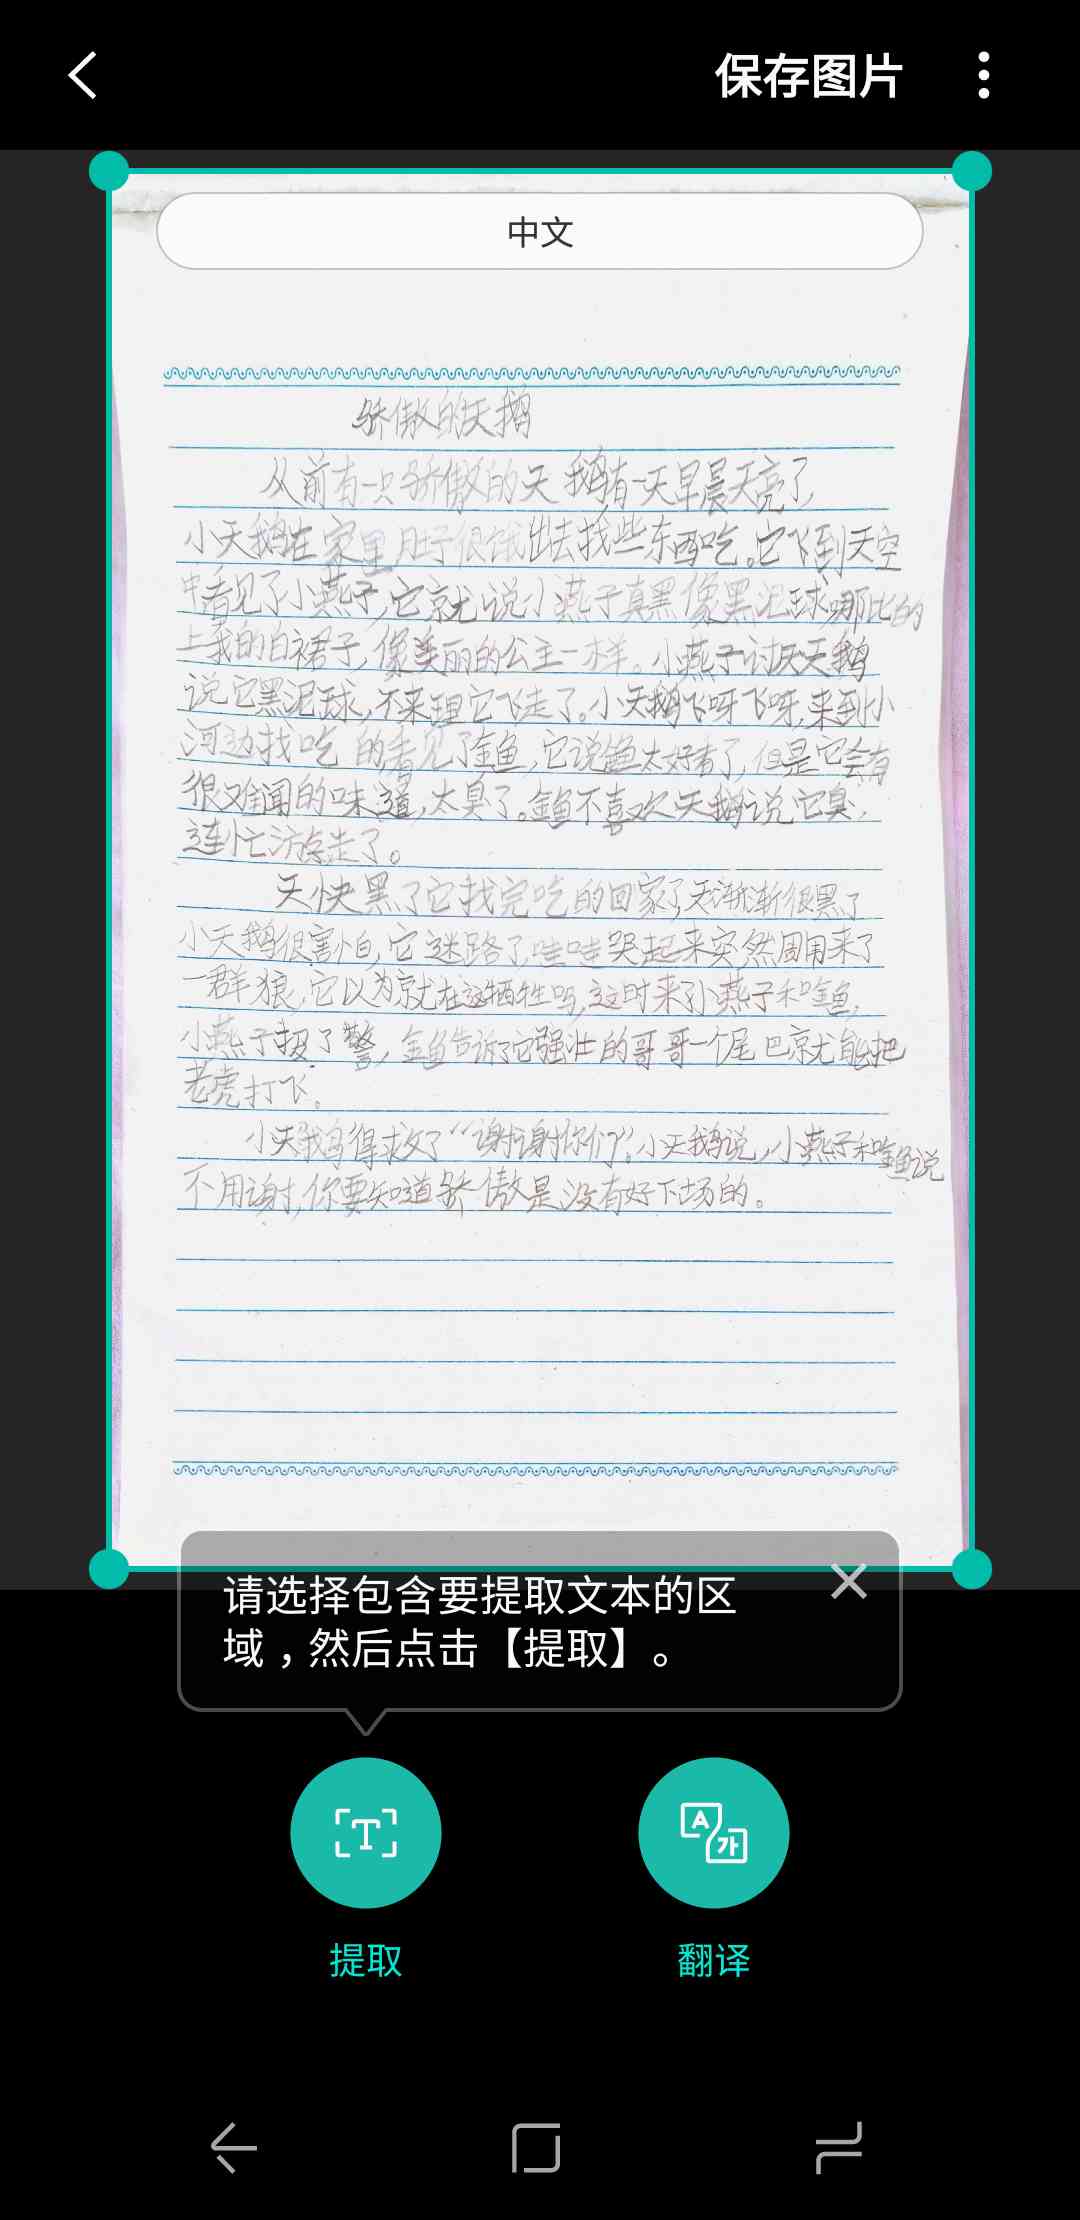 保存图片
中文
骄傲的天鹅
从前有一只骄傲的天鹅有一天早晨天亮了
小天鹅在家里肚子很饿出去找些东西吃。它飞到天空
中看见了小燕子,它就说小燕子真黑像黑泥球哪比的
上我的白裙子,像美丽的公主一样。小燕子讨厌天鹅
说它黑泥球,不来理它飞走了。小天鹅飞呀飞呀,来到小
河边找吃的看见了金鱼,它说鱼太好看了,但是它会有
很难闻的味道,太臭了。金鱼不喜欢天鹅说它臭,
连忙游走了。
天快黑了它找完吃的回家了,天渐渐很黑了
小天鹅很害怕,它迷路了,哇哇哭起来突然周围来了
一群狼,它以为就在这牺牲吗,这时来了小燕子和金鱼,
小燕子报了警,金鱼告诉了它强壮的哥哥一个尾巴就能把
老虎打飞。
小天鹅得救了“谢谢你们”。小天鹅说,小燕子和金鱼说
不用谢,你要知道骄傲是没有好下场的。
请选择包含要提取文本的区
域，然后点击【提取】。
提取
翻译